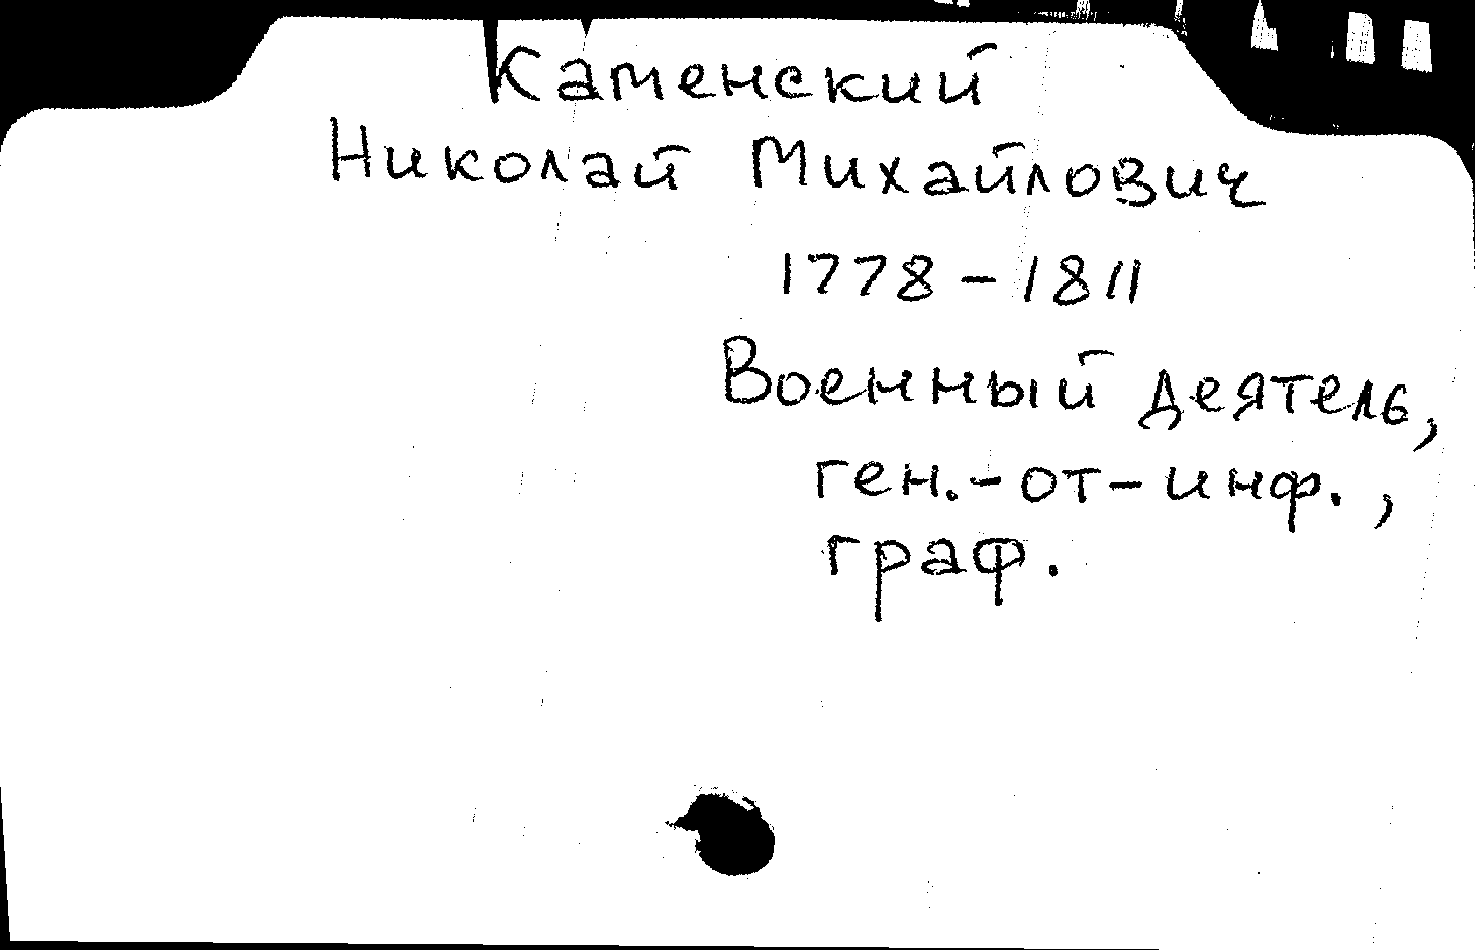 Каменский
Николай Михайлович
1778-1811
Военный деятель,
ген.-от-инф.,
граф.